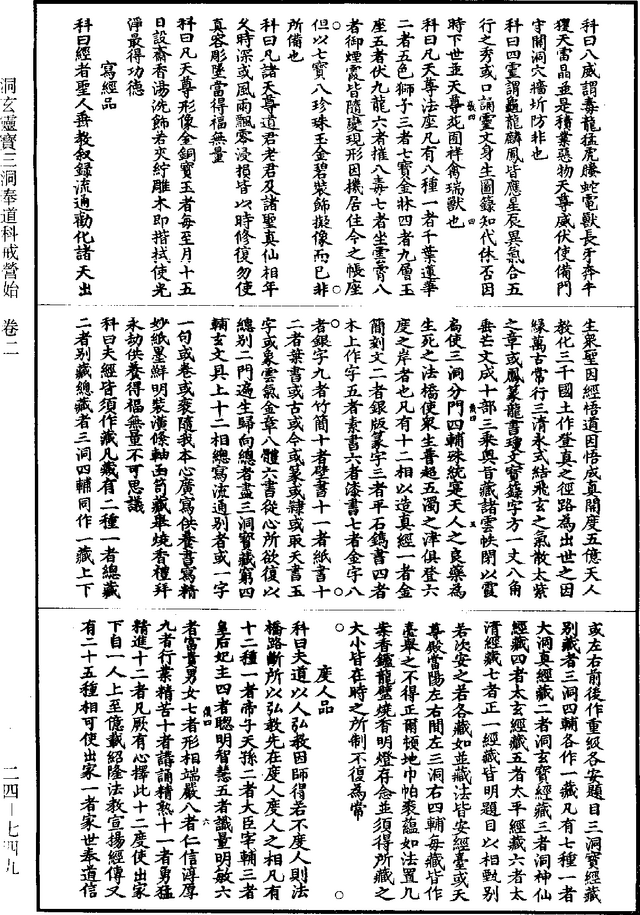 科曰八威謂毒龍猛虎螣蛇電獸長牙奔牛
玃天雷晶並是積業惡物天尊威伏使備門
守關洞穴牆圻防非也
科曰四靈謂龜龍麟鳳皆應星辰異氣合五
行之秀或口誦靈文身生圖籙知代休否因
時下世並天尊죄固祥禽瑞獸也
科曰凡天尊法座凡有八種一者千葉蓮華
二者五色獅子三者七寶金牀四者九層玉
座五者伏九龍六者摧八毒七者坐雲霄八
者御煙霞皆隨變現形因機居住今之帳座
但以七寶八珍珠玉金碧裝飾擬像而已非
所備也
科曰凡諸天尊道君老君及諸聖真仙相年
久時深或風雨飄零浸損皆以時修復勿使
真容彫墜當得福無量
科曰凡天尊形像金銅寶玉者每至月十五
日設齋香湯洗飾若夾紵雕木即揩拭使光
淨最得功德
寫經品
科曰經者聖人垂教叙錄流通勸化諸天出
生衆聖因經悟道因悟成真開度五億天人
教化三千國土作登真之徑路為出世之因
緣萬古常行三清永式結飛玄之氣散太紫
之章或鳳篆龍書瓊文寶籙字方一丈八角
垂芒文成十部三乘奧旨藏諸雲帙閉以霞
扃使三洞分門四輔殊統寔天人之良藥為
生死之法橋使衆生普超五濁之津俱登六
度之岸者也凡有十二相以造真經一者金
簡刻文二者銀版篆字三者平石鐫書四者
木上作字五者素書六者漆書七者金字八
者銀字九者竹簡十者壁書十一者紙書十
二者葉書或古或今或篆或隸或取天書玉
字或象雲氣金章八體六書從心所欲復以
總別二門遍生歸向總者盡三洞寶藏窮四
輔玄文具上十二相總寫流通別者或一字
一句或卷或袠隨我本心廣寫供養書寫精
妙紙墨鮮明裝潢條軸函笥藏舉燒香禮拜
永劫供養得福無量不可思議
科曰夫經皆須作藏凡藏有二種一者總藏
二者別藏總藏者三洞四輔同作一藏上下
或左右前後作重級各安題目三洞寶經藏
別藏者三洞四輔各作一藏凡有七種一者
大洞真經藏二者洞玄寶經藏三者洞神仙
經藏四者太玄經藏五者太平經藏六者太
清經藏七者正一經藏皆明題目以相甄別
若次安之若各藏如並藏法皆安經臺或天
尊殿當陽左右間左三洞右四輔每藏皆作
臺舉之不得正爾頓地巾帕裘蘊如法置几
案香鑪龍璧燒香明燈存念並須得所藏之
大小皆在時之所制不復為常
度人品
科曰夫道以人弘教因師得若不度人則法
橋路斷所以弘教先在度人度人之相凡有
十二種一者帝子天孫二者大臣宰輔三者
皇后妃主四者聰明智慧五者識量明敏六
者富貴男女七者形相端嚴八者仁信淳厚
九者行業精苦十者講誦精熟十一者勇猛
精進十二者凡厥有心擇此十二度使出家
下自一人上至億載紹隆法教宣揚經傳又
有二十五種相可使出家一者家世奉道信
洞玄靈寶三洞奉道科戒營始 卷二
二四—七四九